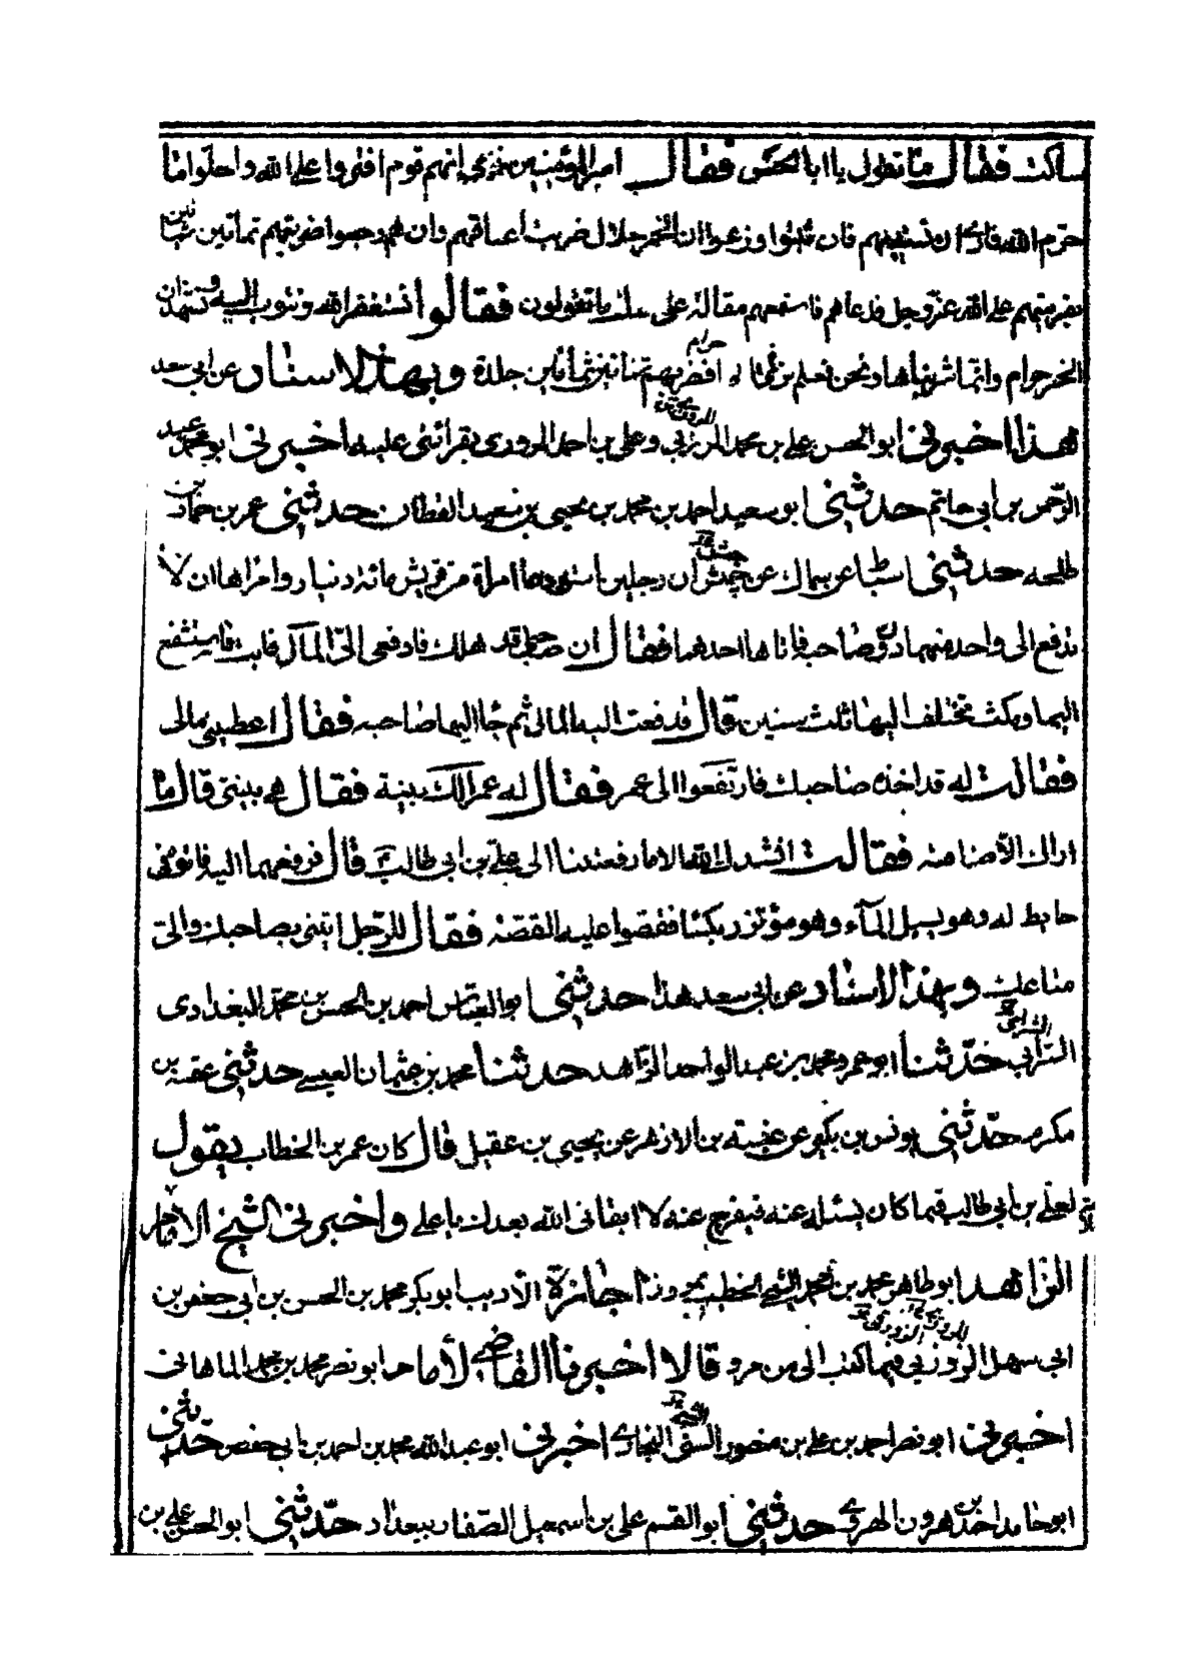 ساكت فقال ما تقول يا ابا الحسن فقال امير المؤمنين انهم قوم افتروا على الله واحلوا ما
حرم الله فارى ان تستتيبهم فان ثبتوا وزعموا ان الخمر حلال ضربت اعناقهم وان هم رجعوا ضربتهم ثمانين ثمانين
بفريتهم على الله عز وجل فدعاهم فاسمعهم مقالة على ما تقولون فقالوا نستغفر الله ونتوب اليه ونشهد ان
الخمر حرام وانما شربناها ونحن نعلم حرام فضربهم ثمانين ثمانين جلدة وبهذا الاسناد عن ابي سعد
هذا اخبرني ابو الحسن علي بن محمد المرزبي وعلي بن احمد المروزى بقرائتي عليه اخبرني ابو محمد عبد
الرحمن بن ابي حاتم حدثني ابو سعيد احمد بن محمد بن يحيى بن سعيد القطان حدثني عمر بن حماد بن
طلحه حدثني اسباط عن سماك عن حنش ان رجلين استودعا امرأة من قريش مائة دينار وامراها ان لا
تدفع الى واحد منهما دون صاحبه فاتاها احدهما فقال ان صاحبى قد هلك فادفعى الى المال فابت فاستشفع
اليها ومكث يختلف اليها ثلث سنين قال فدفعت اليه المال ثم جاء اليها صاحبه فقال اعطيني مالى
فقالت له قد اخذه صاحبك فارتفعوا الى عمر فقال له عمر الك بينة فقال هي بينتى قال ما
اراك الا ضامنه فقالت انشدك الله الا ما رفعتنا الى علي بن ابي طالب قال فرفعهما اليه فاتوه في
حايط له وهو يسيل الماء وهو مؤتزر بكساء فقصوا عليه القصة فقال للرجل ايتني بصاحبك والى
متاعك وبهذا الاسناد عن ابي سعد هذا حدثني ابو العباس احمد بن الحسن بن محمد البغدادى
حدثنا ابو عمرو محمد بن عبد الواحد الزاهد حدثنا محمد بن عثمان العبسي حدثني عقبة بن
مكرم حدثني يونس بن بكير عن عنبسة بن الازهر عن يحيى بن عقيل قال كان عمر بن الخطاب يقول
لعلي بن ابي طالب فيما كان يسئله عنه فيفرج عنه لا ابقاني الله بعدك يا علي واخبرني الشيخ الامام
الزاهد ابو طاهر محمد بن محمد الخطيب بمرو اجازة الاديب ابو بكر محمد بن الحسن بن ابي جعفر بن
ابي سهل الزوزني فيما كتب الى من مرو قالا اخبرنا القاضي الامام ابو نصر محمد بن محمد الماهانى
اخبرني ابو نصر احمد بن علي بن منصور البخارى اخبرني ابو عبد الله محمد بن احمد بن ابي حفص حدثني
ابو حامد احمد بن هرون الهروي حدثني ابو القسم علي بن اسمعيل الصفار ببغداد حدثني ابو الحسن علي بن